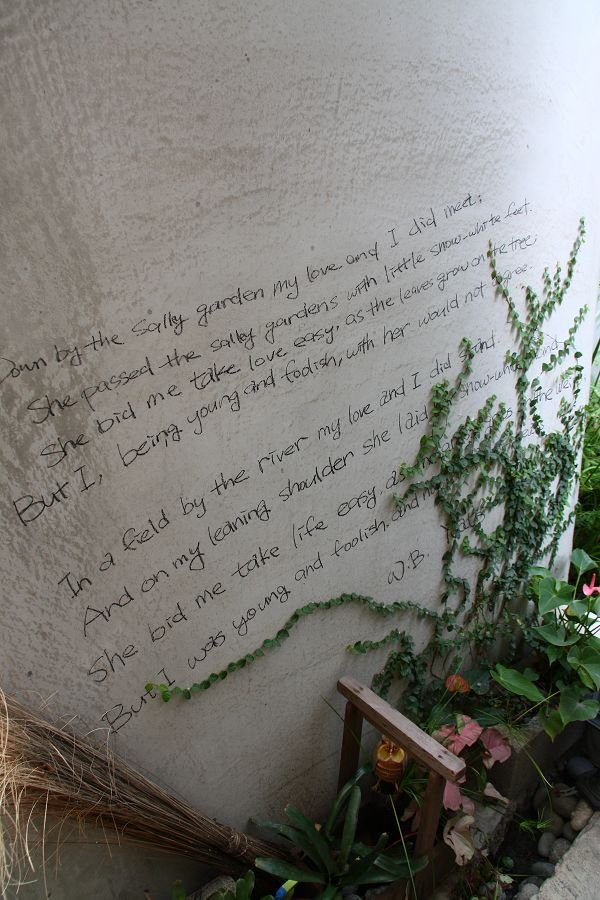 Down by the Sally garden my love and I did meet;
She passed the sally gardens with little snow-white feet.
She bid me take love easy, as the leaves grow on the tree;
But I, being young and foolish, with her would not agree.
In a field by the river my love and I did stand.
And on my leaning shoulder she laid snow-white
She bid me take life easy, as grass the
But I was young and foolish, and
W.B. Yeats